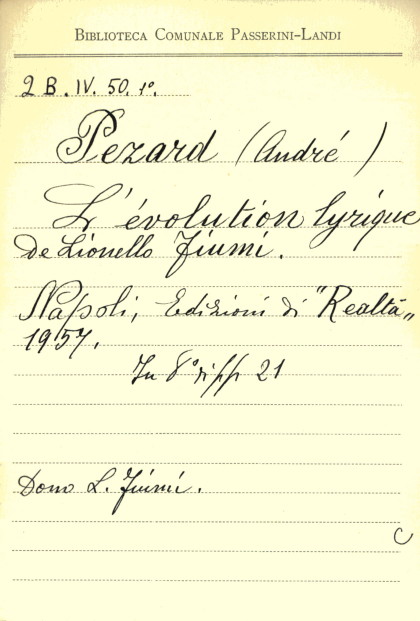 BIBLIOTECA COMUNALE PASSERINI-LANDI
2 B. IV. 50. 1º.
Pezard (André)
L'évolution lyrique
de Lionello Fiumi.
Napoli, Edizioni di "Realtà"
1957.
In 8º di pp 21
Dono L. Fiumi.
C